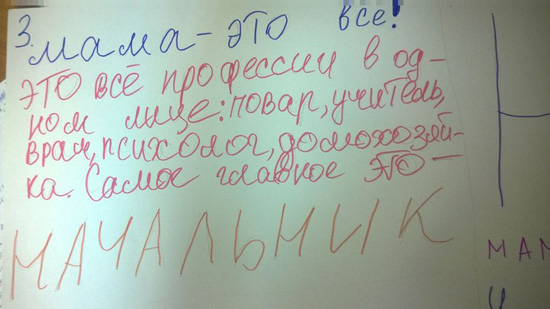 3. мама - это все!
это всё профессии в од-
ном лице: повар, учитель,
врач, психолог, домохозяй-
ка. Самое главное это -
НАЧАЛЬНИК
МАМ